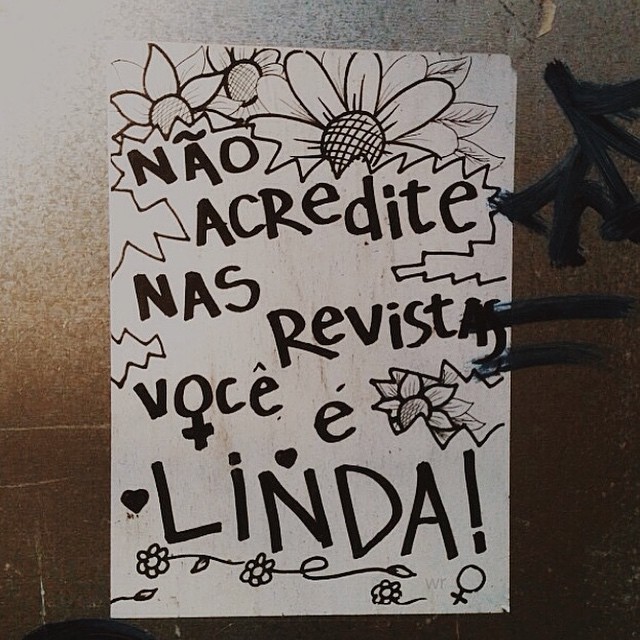 NÃO
ACRedite
NAS
Revistas
você é
LiNDA!
wr